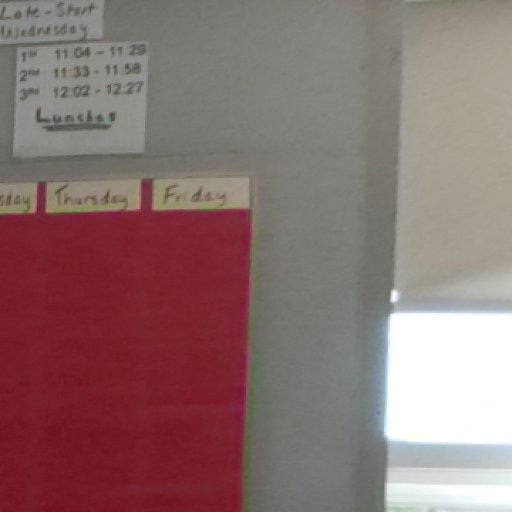 Late-Start
Wednesday
1st 11:04 - 11:29
2nd 11:33 - 11:58
3rd 12:02 - 12:27
Lunches
sday Thursday Friday